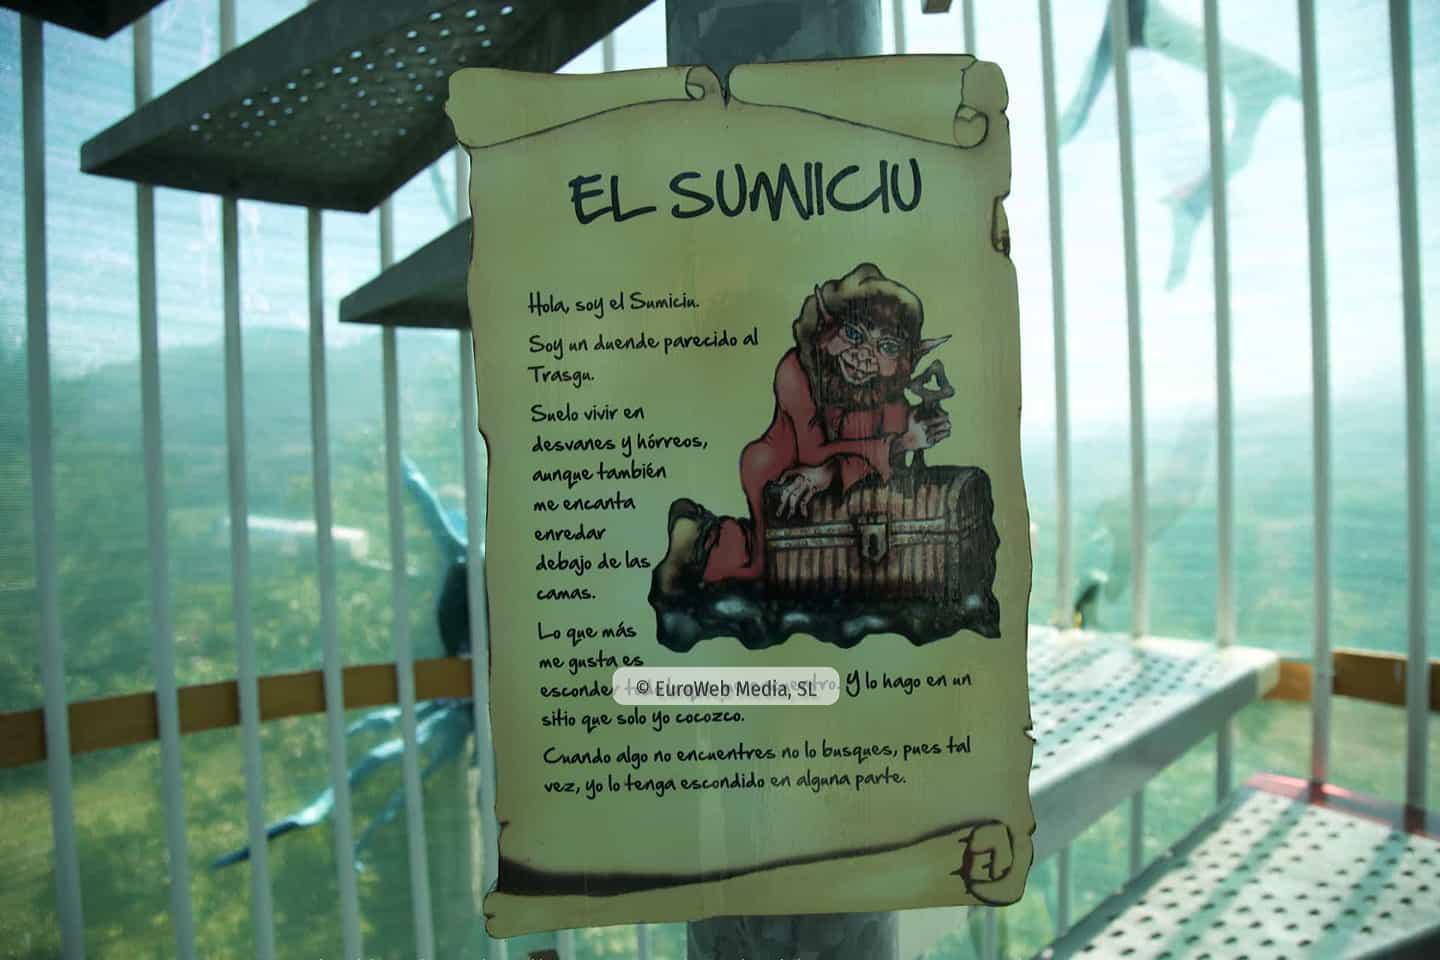 EL SUMICIU
Hola, soy el Sumiciu.
Soy un duende parecido al
Trasgu.
Suelo vivir en
desvanes y hórreos,
aunque también
me encanta
enredar
debajo de las
camas.
Lo que más
me gusta es
esconder Y lo hago en un
© EuroWeb Media, SL
sitio que solo yo cocozco.
Cuando algo no encuentres no lo busques, pues tal
vez, yo lo tenga escondido en alguna parte.